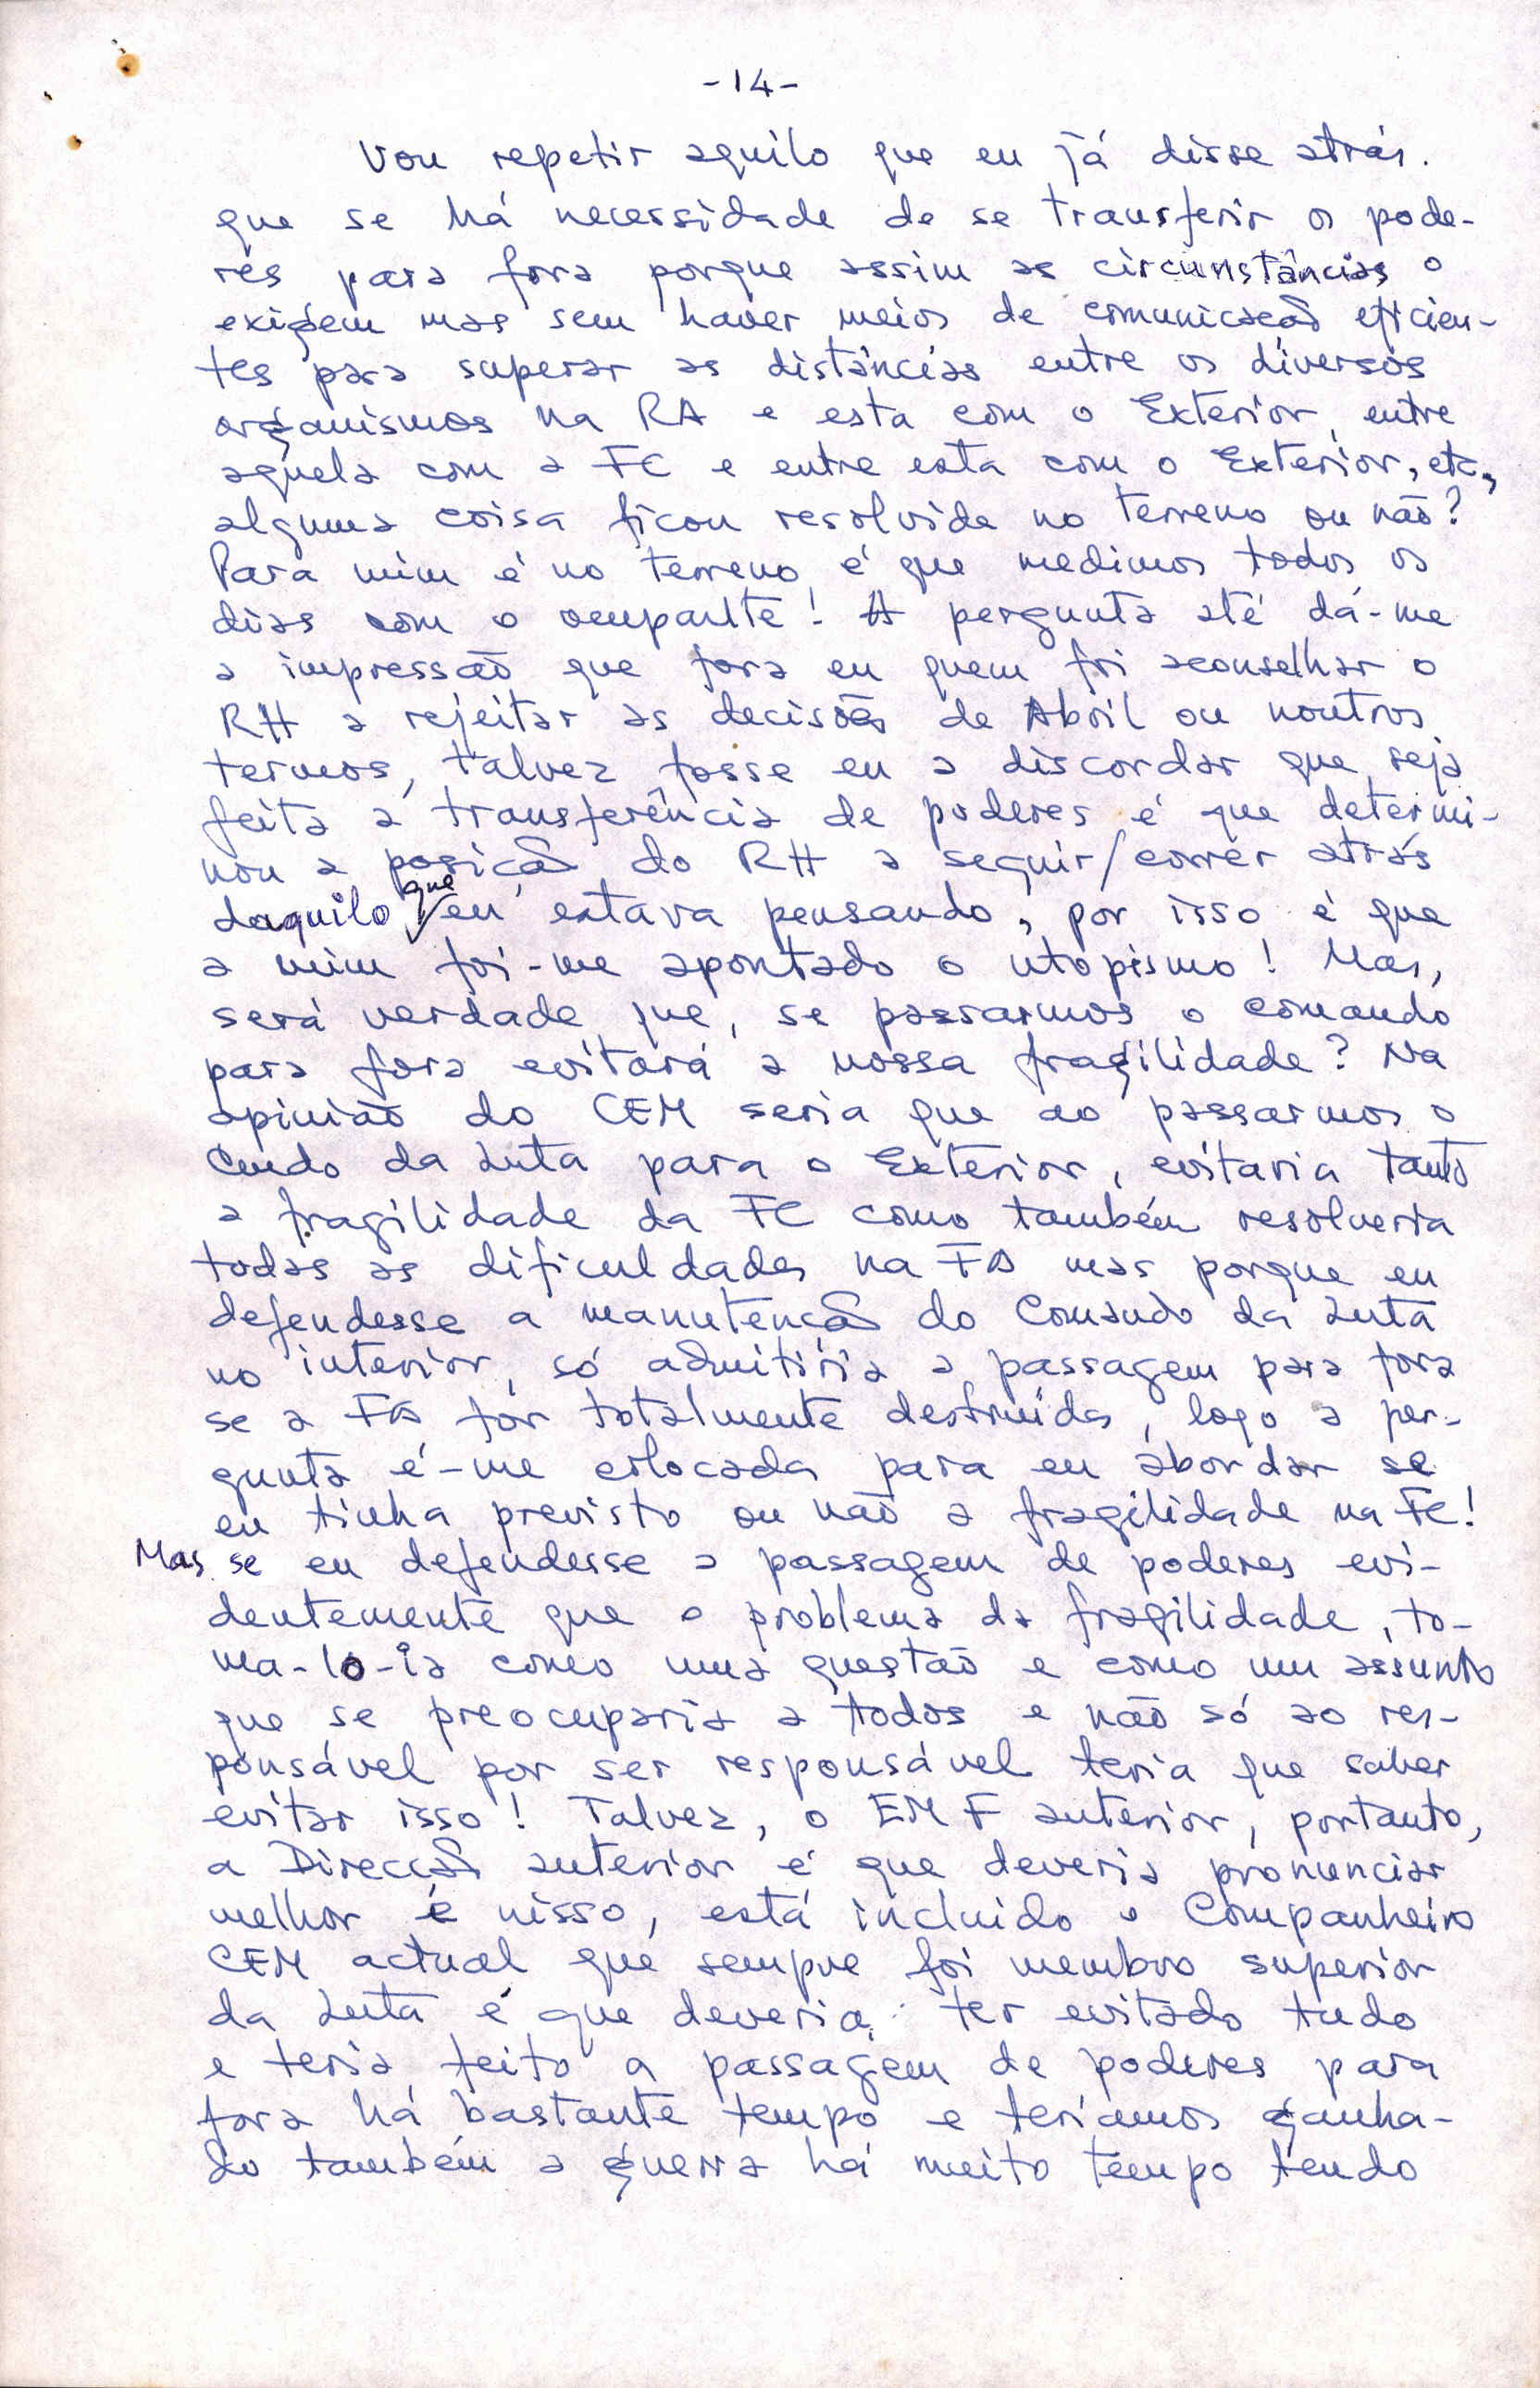 -14-
Vou repetir aquilo que eu já disse atrás.
que se há necessidade de se transferir os pode-
res para fora porque assim as circunstâncias o
exigem mas sem haver meios de comunicação eficien-
tes para superar as distâncias entre os diversos
organismos na RA e esta com o Exterior, entre
aquela com a FC e entre esta com o Exterior, etc,
alguma coisa ficou resolvida no terreno ou não?
Para mim é no terreno é que medimos todos os
dias com o ocupante! A pergunta até dá-me
a impressão que fora eu quem foi aconselhar o
RH a rejeitar as decisões de Abril ou noutros
termos, talvez fosse eu a discordar que seja
feita a transferência de poderes é que determi-
nou a posição do RH a seguir/correr atrás
daquilo que eu estava pensando, por isso é que
a mim foi-me apontado o utopismo! Mas,
será verdade que, se passarmos o comando
para fora evitará a nossa fragilidade? Na
opinião do CEM seria que ao passarmos o
Cmdo da Luta para o Exterior, evitaria tanto
a fragilidade da FC como também resolveria
todas as dificuldades na FA mas porque eu
defendesse a manutenção do Comando da Luta
no interior, só admitiria a passagem para fora
se a FA fôr totalmente destruída, logo a per-
gunta é-me colocada para eu abordar se
eu tinha previsto ou não a fragilidade na FC!
Mas se eu defendesse a passagem de poderes evi-
dentemente que o problema da fragilidade, to-
ma-lo-ia como uma questão e como um assunto
que se preocuparia a todos e não só ao res-
ponsável por ser responsável teria que saber
evitar isso! Talvez, o EMF anterior, portanto,
a Direcção anterior é que deveria pronunciar
melhor é nisso, está incluido o Companheiro
CEM actual que sempre foi membro superior
da Luta é que deveria ter evitado tudo
e teria feito a passagem de poderes para
fora há bastante tempo e teríamos ganha-
do também a guerra há muito tempo tendo